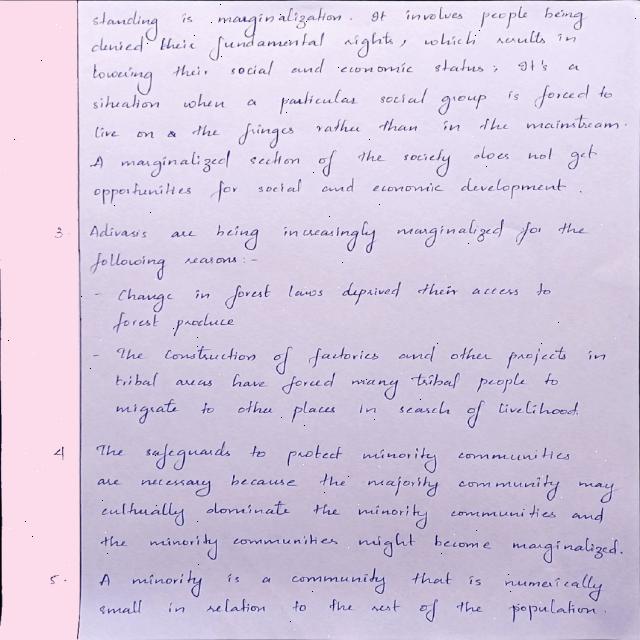 standing is marginalization. It involves people being
denied their fundamental rights, which results in
lowering their social and economic status; It's a
situation when a particular social group is forced to
live on & the fringes rather than in the mainstream.
A marginalized section of the society does not get
opportunities for social and economic development.
3. Adivasis are being increasingly marginalized for the
following reasons:-
- Change in forest laws deprived their access to
forest produce
- The construction of factories and other projects in
tribal areas have forced many tribal people to
migrate to other places in search of livelihood.
4 The safeguards to protect minority communities
are necessary because the majority community may
culturally dominate the minority communities and
the minority communities might become marginalized.
5. A minority is a community that is numerically
small in relation to the rest of the population.